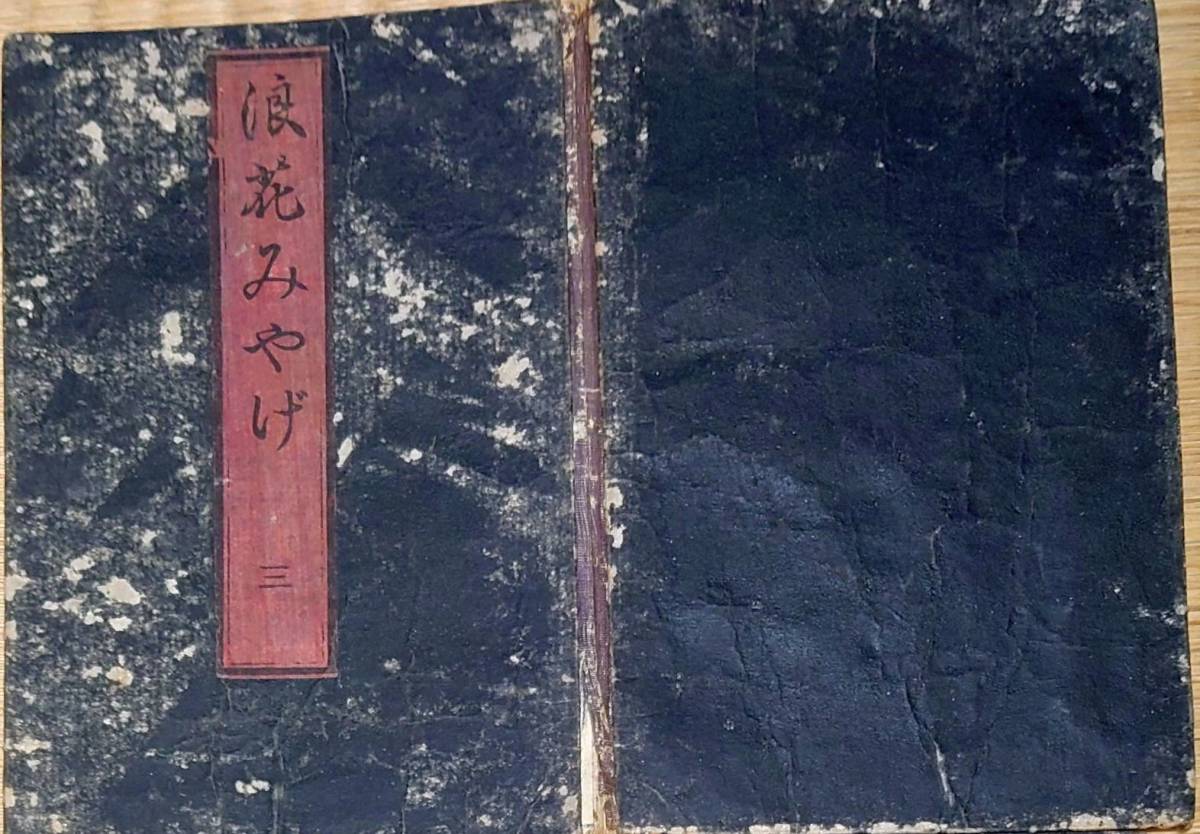 浪花みやげ
三